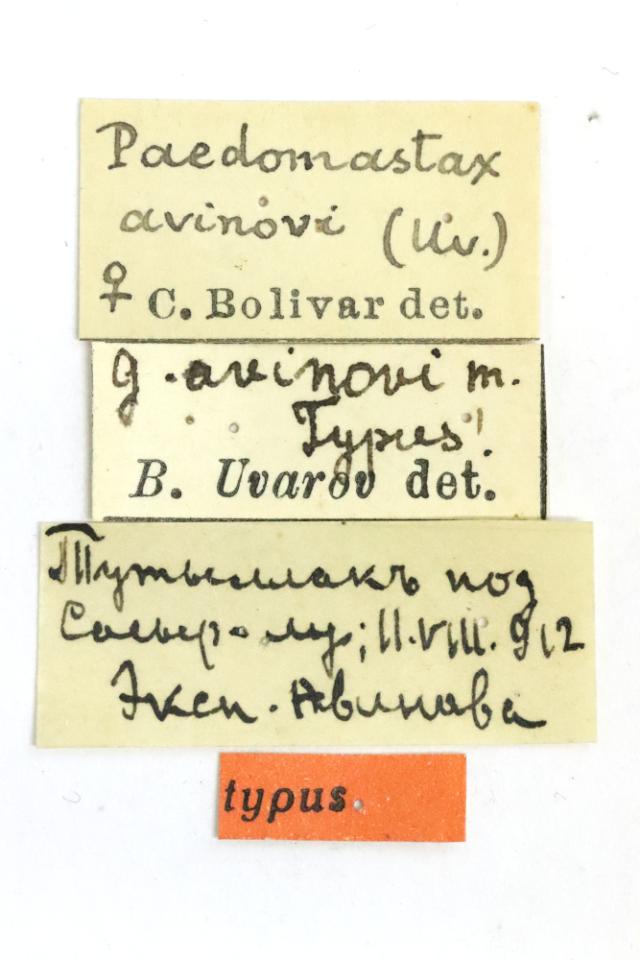 Paedomastax
avinovi (Uv.)
♀ C. Bolivar det.
g. avinovi m.
Typus!
B. Uvarov det.
под
11.VIII.912
Эксп. Авинова
typus.